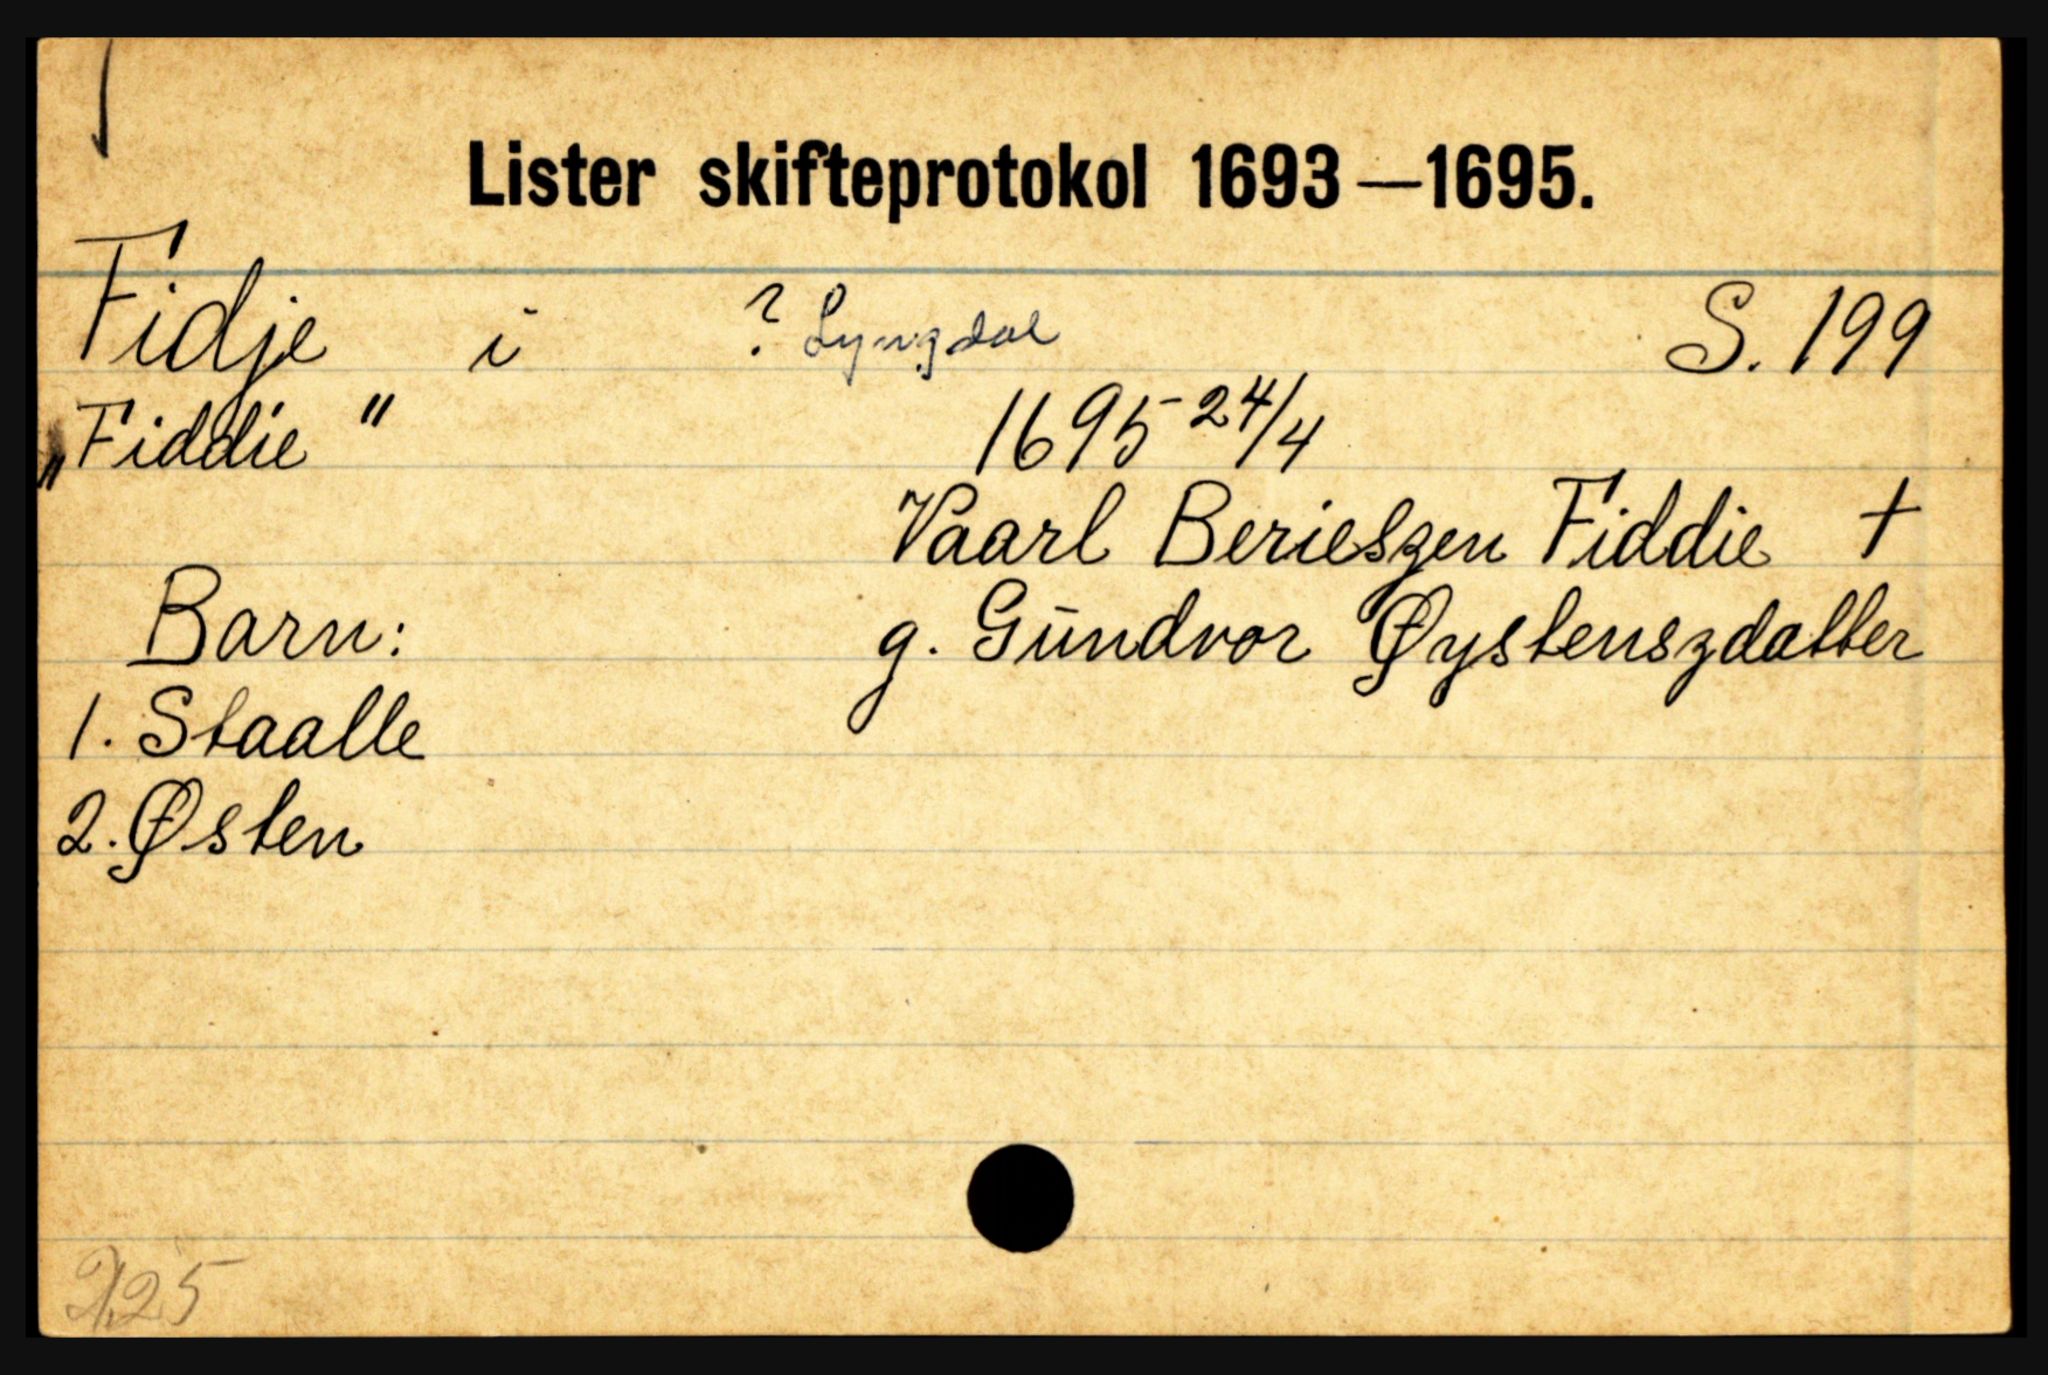 Lister skifteprotokol 1693—1695.
Fidje i ? Lyngdal S. 199
„Fiddie" 1695 24/4
Vaarl Berieszen Fiddie +
Barn: g. Gundvor Øystenszdatter
1. Staalle
2. Østen